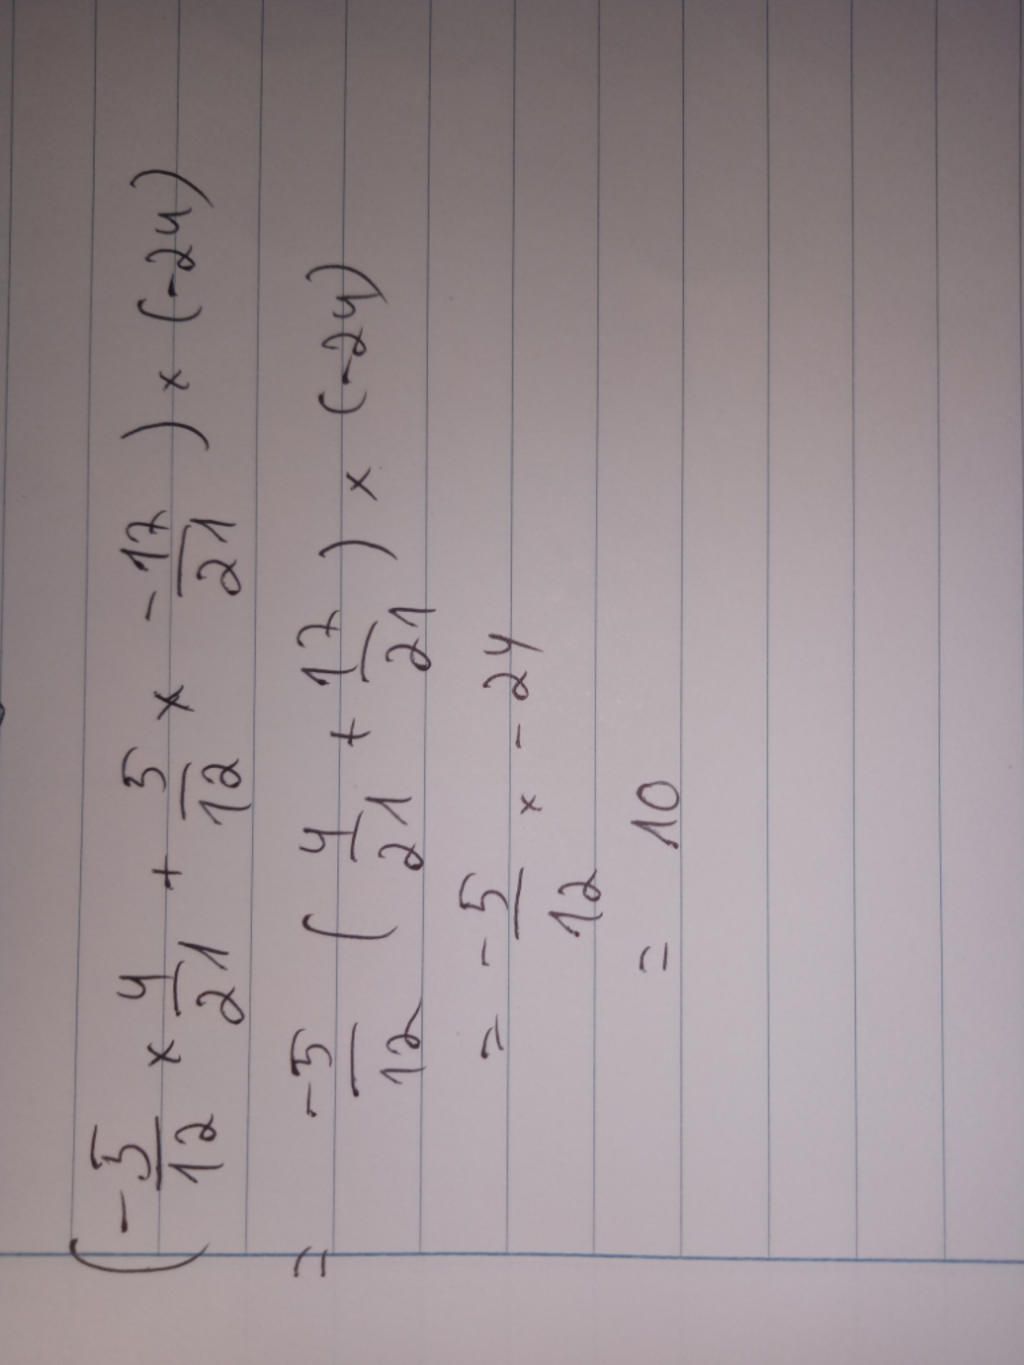 (-5/12 × 4/21 + 5/12 × -17/21) × (-24)
= -5/12 (4/21 + 17/21) × (-24)
= -5/12 × -24
= 10